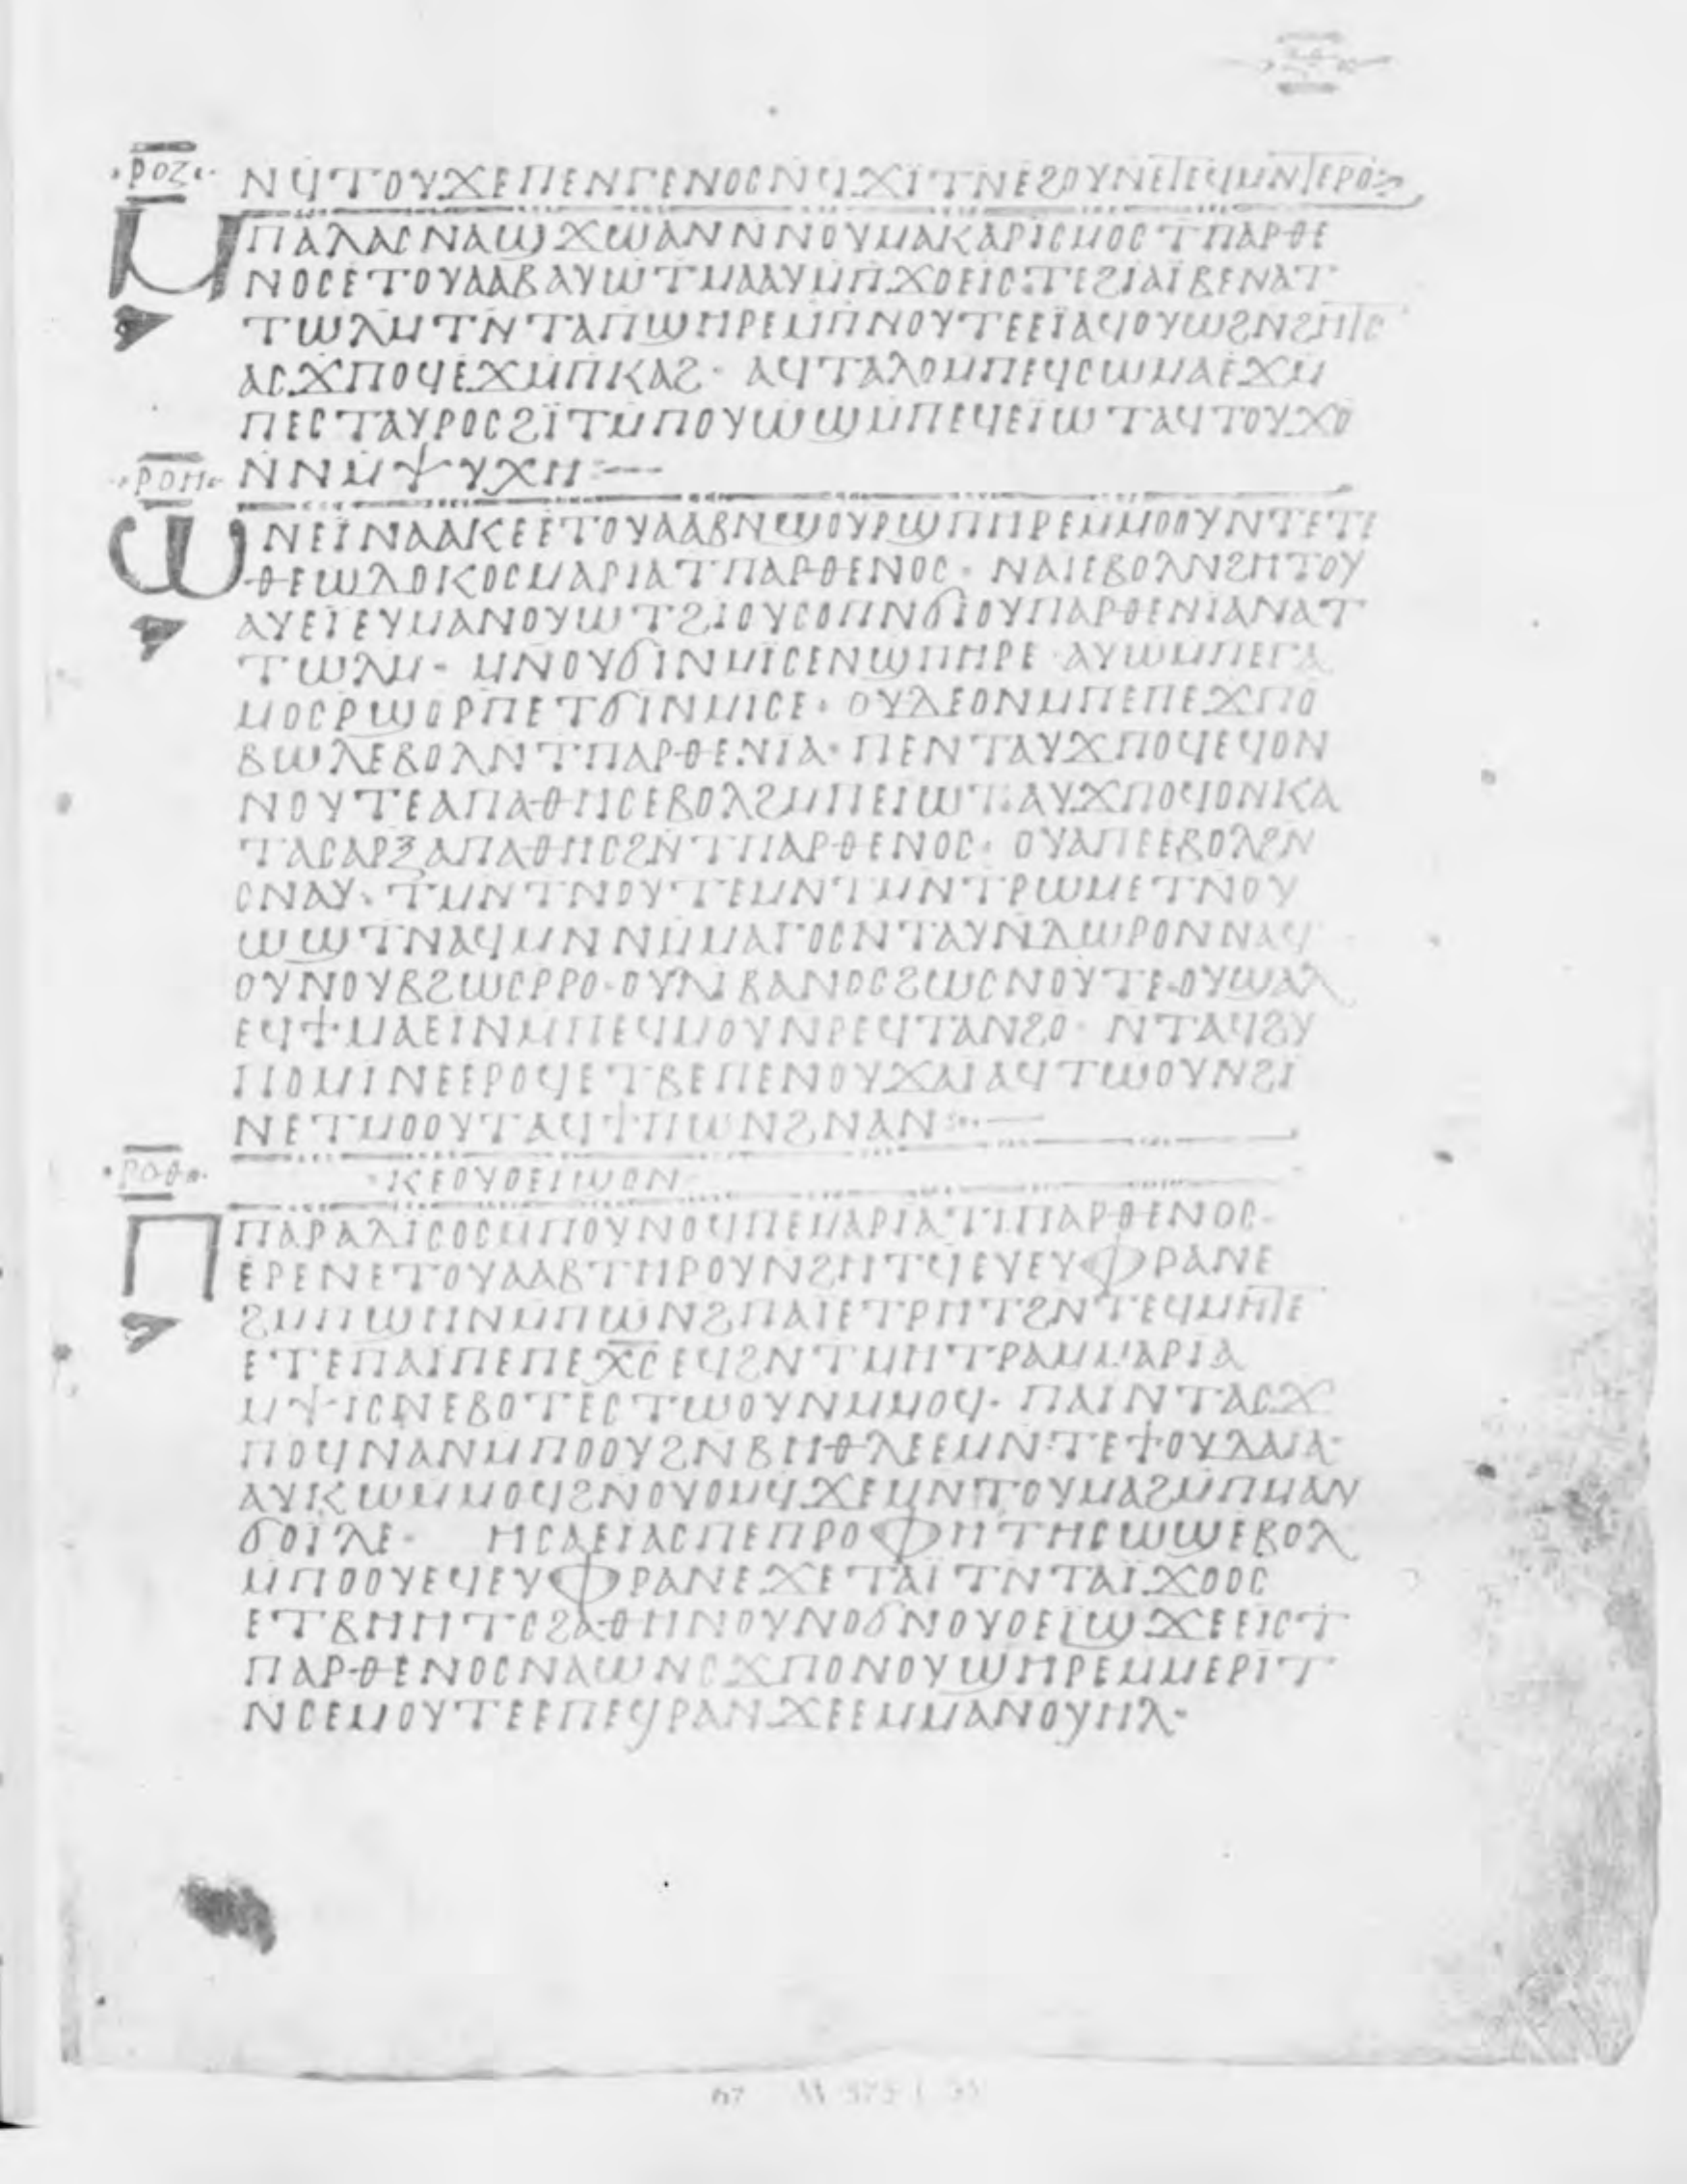 ⲛϥⲧⲟⲩϫⲉⲡⲉⲛⲅⲉⲛⲟⲥⲛϥϫⲓⲧⲛⲉϩⲟⲩⲛⲉⲧⲉϥⲙⲛⲧⲉⲣⲟ
ⲣⲟⲍ
ⲙⲡⲁⲗⲁⲥⲛⲁϣϫⲱⲁⲛⲛⲛⲟⲩⲙⲁⲕⲁⲣⲓⲥⲙⲟⲥⲧⲡⲁⲣⲑⲉ
ⲛⲟⲥⲉⲧⲟⲩⲁⲁⲃⲁⲩⲱⲧⲙⲁⲁⲩⲙⲡϫⲟⲉⲓⲥⲧⲉϩⲓⲁⲓⲃⲉⲛⲁⲧ
ⲧⲱⲗⲙⲧⲛⲧⲁⲡϣⲏⲣⲉⲙⲡⲛⲟⲩⲧⲉⲉⲓⲁϥⲟⲩⲱϩⲛϩⲏⲧⲥ
ⲁⲥϫⲡⲟϥⲉϫⲙⲡⲕⲁϩ· ⲁϥⲧⲁⲗⲟⲙⲡⲉϥⲥⲱⲙⲁⲉϫⲙ
ⲡⲉⲥⲧⲁⲩⲣⲟⲥϩⲓⲧⲙⲡⲟⲩⲱϣⲙⲡⲉϥⲉⲓⲱⲧⲁϥⲧⲟⲩϫⲟ
ⲛⲛⲙⲯⲩⲭⲏ:—
ⲣⲟⲏ
ⲱⲛⲉⲓⲛⲁⲁⲕⲉⲉⲧⲟⲩⲁⲁⲃⲛϣⲟⲩⲣϣⲡⲏⲣⲉⲙⲙⲟⲟⲩⲛⲧⲉⲧⲉ
ⲑⲉⲱⲗⲟⲕⲟⲥⲙⲁⲣⲓⲁⲧⲡⲁⲣⲑⲉⲛⲟⲥ· ⲛⲁⲓⲉⲃⲟⲗⲛϩⲏⲧⲟⲩ
ⲁⲩⲉⲓⲉⲩⲙⲁⲛⲟⲩⲱⲧϩⲓⲟⲩⲥⲟⲡⲛϭⲓⲟⲩⲡⲁⲣⲑⲉⲛⲓⲁⲛⲁⲧ
ⲧⲱⲗⲙ· ⲙⲛⲟⲩϭⲓⲛⲙⲓⲥⲉⲛϣⲡⲏⲣⲉ ⲁⲩⲱⲙⲡⲉⲅⲁ
ⲙⲟⲥⲣϣⲟⲣⲡⲉⲧϭⲓⲛⲙⲓⲥⲉ· ⲟⲩⲇⲉⲟⲛⲙⲡⲉⲡⲉϫⲡⲟ
ⲃⲱⲗⲉⲃⲟⲗⲛⲧⲡⲁⲣⲑⲉⲛⲓⲁ· ⲡⲉⲛⲧⲁⲩϫⲡⲟϥⲉϥⲟⲛ
ⲛⲟⲩⲧⲉⲁⲡⲁⲑⲏⲥⲉⲃⲟⲗϩⲙⲡⲉⲓⲱⲧ:ⲁⲩϫⲡⲟϥⲟⲛⲕⲁ
ⲧⲁⲥⲁⲣⲝⲁⲡⲁⲑⲏⲥϩⲛⲧⲡⲁⲣⲑⲉⲛⲟⲥ· ⲟⲩⲁⲡⲉⲉⲃⲟⲗϩⲛ
ⲥⲛⲁⲩ· ⲧⲙⲛⲧⲛⲟⲩⲧⲉⲙⲛⲧⲙⲛⲧⲣⲱⲙⲉⲧⲛⲟⲩ
ⲱϣⲧⲛⲁϥⲙⲛⲛⲙⲙⲁⲅⲟⲥⲛⲧⲁⲩⲛⲇⲱⲣⲟⲛⲛⲁϥ
ⲟⲩⲛⲟⲩⲃϩⲱⲥⲣⲣⲟ·ⲟⲩⲗⲓⲃⲁⲛⲟⲥϩⲱⲥⲛⲟⲩⲧⲉ·ⲟⲩϣⲁⲗ
ⲉϥϯⲙⲁⲉⲓⲛⲙⲡⲉϥⲙⲟⲩⲛⲣⲉϥⲧⲁⲛϩⲟ· ⲛⲧⲁϥϩⲩ
ⲡⲟⲙⲓⲛⲉⲉⲣⲟϥⲉⲧⲃⲉⲡⲉⲛⲟⲩϫⲁⲓⲁϥⲧⲱⲟⲩⲛϩⲓ
ⲛⲉⲧⲙⲟⲟⲩⲧⲁϥϯⲡⲱⲛϩⲛⲁⲛ:·—
ⲣⲟⲑ
ⲕⲉⲟⲩⲟⲉⲓϣⲟⲛ
ⲡⲡⲁⲣⲁⲇⲓⲥⲟⲥⲙⲡⲟⲩⲛⲟϥⲡⲉⲙⲁⲣⲓⲁⲧⲡⲁⲣⲑⲉⲛⲟⲥ·
ⲉⲣⲉⲛⲉⲧⲟⲩⲁⲁⲃⲧⲏⲣⲟⲩⲛϩⲏⲧϥⲉⲩⲉⲩⲫⲣⲁⲛⲉ
ϩⲙⲡϣⲏⲛⲙⲡⲱⲛϩⲡⲁⲓⲉⲧⲣⲏⲧϩⲛⲧⲉϥⲙⲏⲧⲉ
ⲉⲧⲉⲡⲁⲓⲡⲉⲡⲉⲭⲥⲉϥϩⲛⲧⲙⲏⲧⲣⲁⲙⲙⲁⲣⲓⲁ
ⲙⲯⲓⲥⲛⲉⲃⲟⲧⲉⲥⲧⲱⲟⲩⲛⲙⲙⲟϥ· ⲡⲁⲓⲛⲧⲁⲥϫ
ⲡⲟϥⲛⲁⲛⲙⲡⲟⲟⲩϩⲛⲃⲏⲑⲗⲉⲉⲙⲛⲧⲉϯⲟⲩⲇⲁⲓⲁ·
ⲁⲩⲕⲱⲙⲙⲟϥϩⲛⲟⲩⲟⲙϥϫⲉⲙⲛⲧⲟⲩⲙⲁϩⲙⲡⲙⲁⲛ
ϭⲟⲓⲗⲉ· ⲏⲥⲁⲉⲓⲁⲥⲡⲉⲡⲣⲟⲫⲏⲧⲏⲥⲱϣⲉⲃⲟⲗ
ⲙⲡⲟⲟⲩⲉϥⲉⲩⲫⲣⲁⲛⲉϫⲉⲧⲁⲓⲧⲛⲧⲁⲓϫⲟⲟⲥ
ⲉⲧⲃⲏⲏⲧⲥϩⲁⲑⲏⲛⲟⲩⲛⲟϭⲛⲟⲩⲟⲉⲓϣϫⲉⲉⲓⲥⲧ
ⲡⲁⲣⲑⲉⲛⲟⲥⲛⲁⲱⲛⲥϫⲡⲟⲛⲟⲩϣⲏⲣⲉⲙⲙⲉⲣⲓⲧ
ⲛⲥⲉⲙⲟⲩⲧⲉⲉⲡⲉϥⲣⲁⲛϫⲉⲉⲙⲙⲁⲛⲟⲩⲏⲗ·